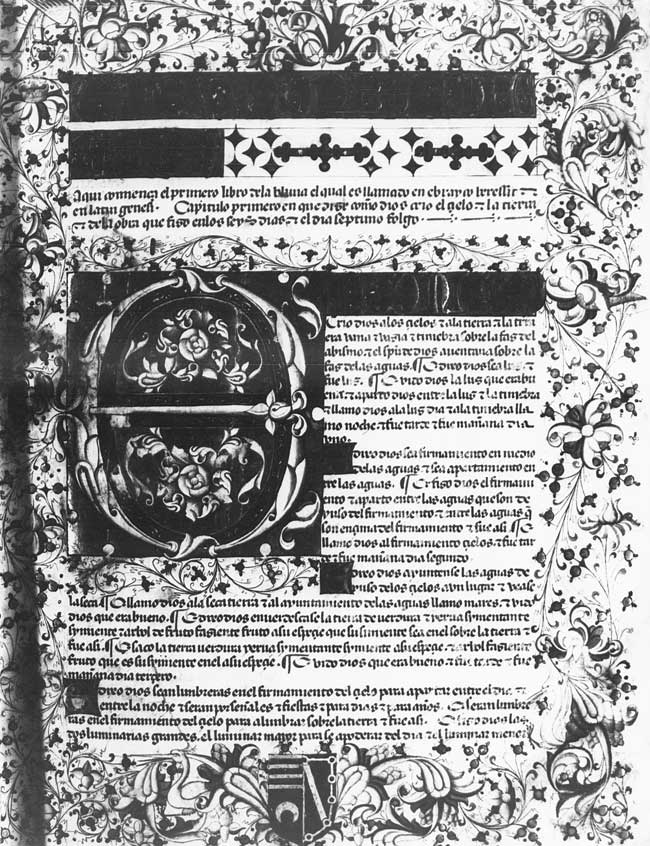 Aqui comiença el primero libro dela bliuia el qual es llamado en ebrayco bressit ⁊
en latin genesi. Capitulo primero en que dise como dios crio el çielo ⁊ la tierra
⁊ dela obra que fiso enlos seys dias ⁊ el dia septimo folgo
Crio dios alos çielos ⁊ ala tierra ⁊ la trra
era vana ⁊ vasia ⁊ tiniebra sobre la fas del
abismo ⁊ el spiritu de dios auentaua sobre la
fas delas aguas. E dixo dios sea lus ⁊
fue lus. E vido dios la lus que era bu
ena ⁊ aparto dios entre la lus ⁊ la tiniebra
⁊ llamo dios ala lus dia ⁊ ala tiniebra lla
mo noche ⁊ fue tarde ⁊ fue mañana dia
vno.
dixo dios sea firmamiento en medio
delas aguas ⁊ sea apartamiento en
tre las aguas. E fiso dios el firmami
ento ⁊ aparto entre las aguas que son de
yuso del firmamiento ⁊ entre las aguas q̃
son ençima del firmamiento ⁊ fue asi. E
llamo dios al firmamiento çielos ⁊ fue tar
de ⁊ fue mañana dia segundo
dixo dios ayuntense las aguas de
yuso delos çielos a vn lugar ⁊ vease
la seca. E llamo dios ala seca tierra ⁊ al ayuntamiento delas aguas llamo mares ⁊ vido
dios que era bueno. E dixo dios enuerdescase la tierra de verdura ⁊ yerua symentante
symiente ⁊ arbol de fruto fasiente fruto a su espeçie que su simiente sea en el sobre la tierra ⁊
fue asi. E saco la tierra verdura yerua symentante symiente a su espeçie. ⁊ arbol fasiente
fruto que es su symiente en el a su espeçie. E vido dios que era bueno ⁊ fue tarde ⁊ fue
mañana dia terçero.
dixo dios sean lunbreras enel firmamiento del çielo para apartar entre el dia ⁊
entre la noche ⁊ seran por señales ⁊ fiestas ⁊ para dias ⁊ para años. E seran lunbre
ras enel firmamiento del çielo para alunbrar sobre la tierra ⁊ fue asi. E fiso dios las
dos luminarias grandes. el luminar mayor para se apoderar del dia ⁊ el luminar menor